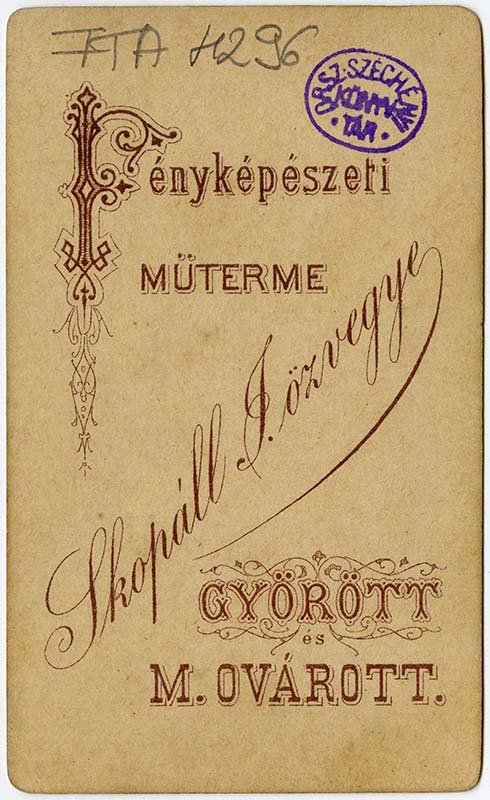 FTA 4296
ORSZ. SZÉCHÉNYI
KÖNYV
TÁR.
Fényképészeti
MŰTERME
Skopáll J. özvegye
GYÖRÖTT
és
M. OVÁROTT.